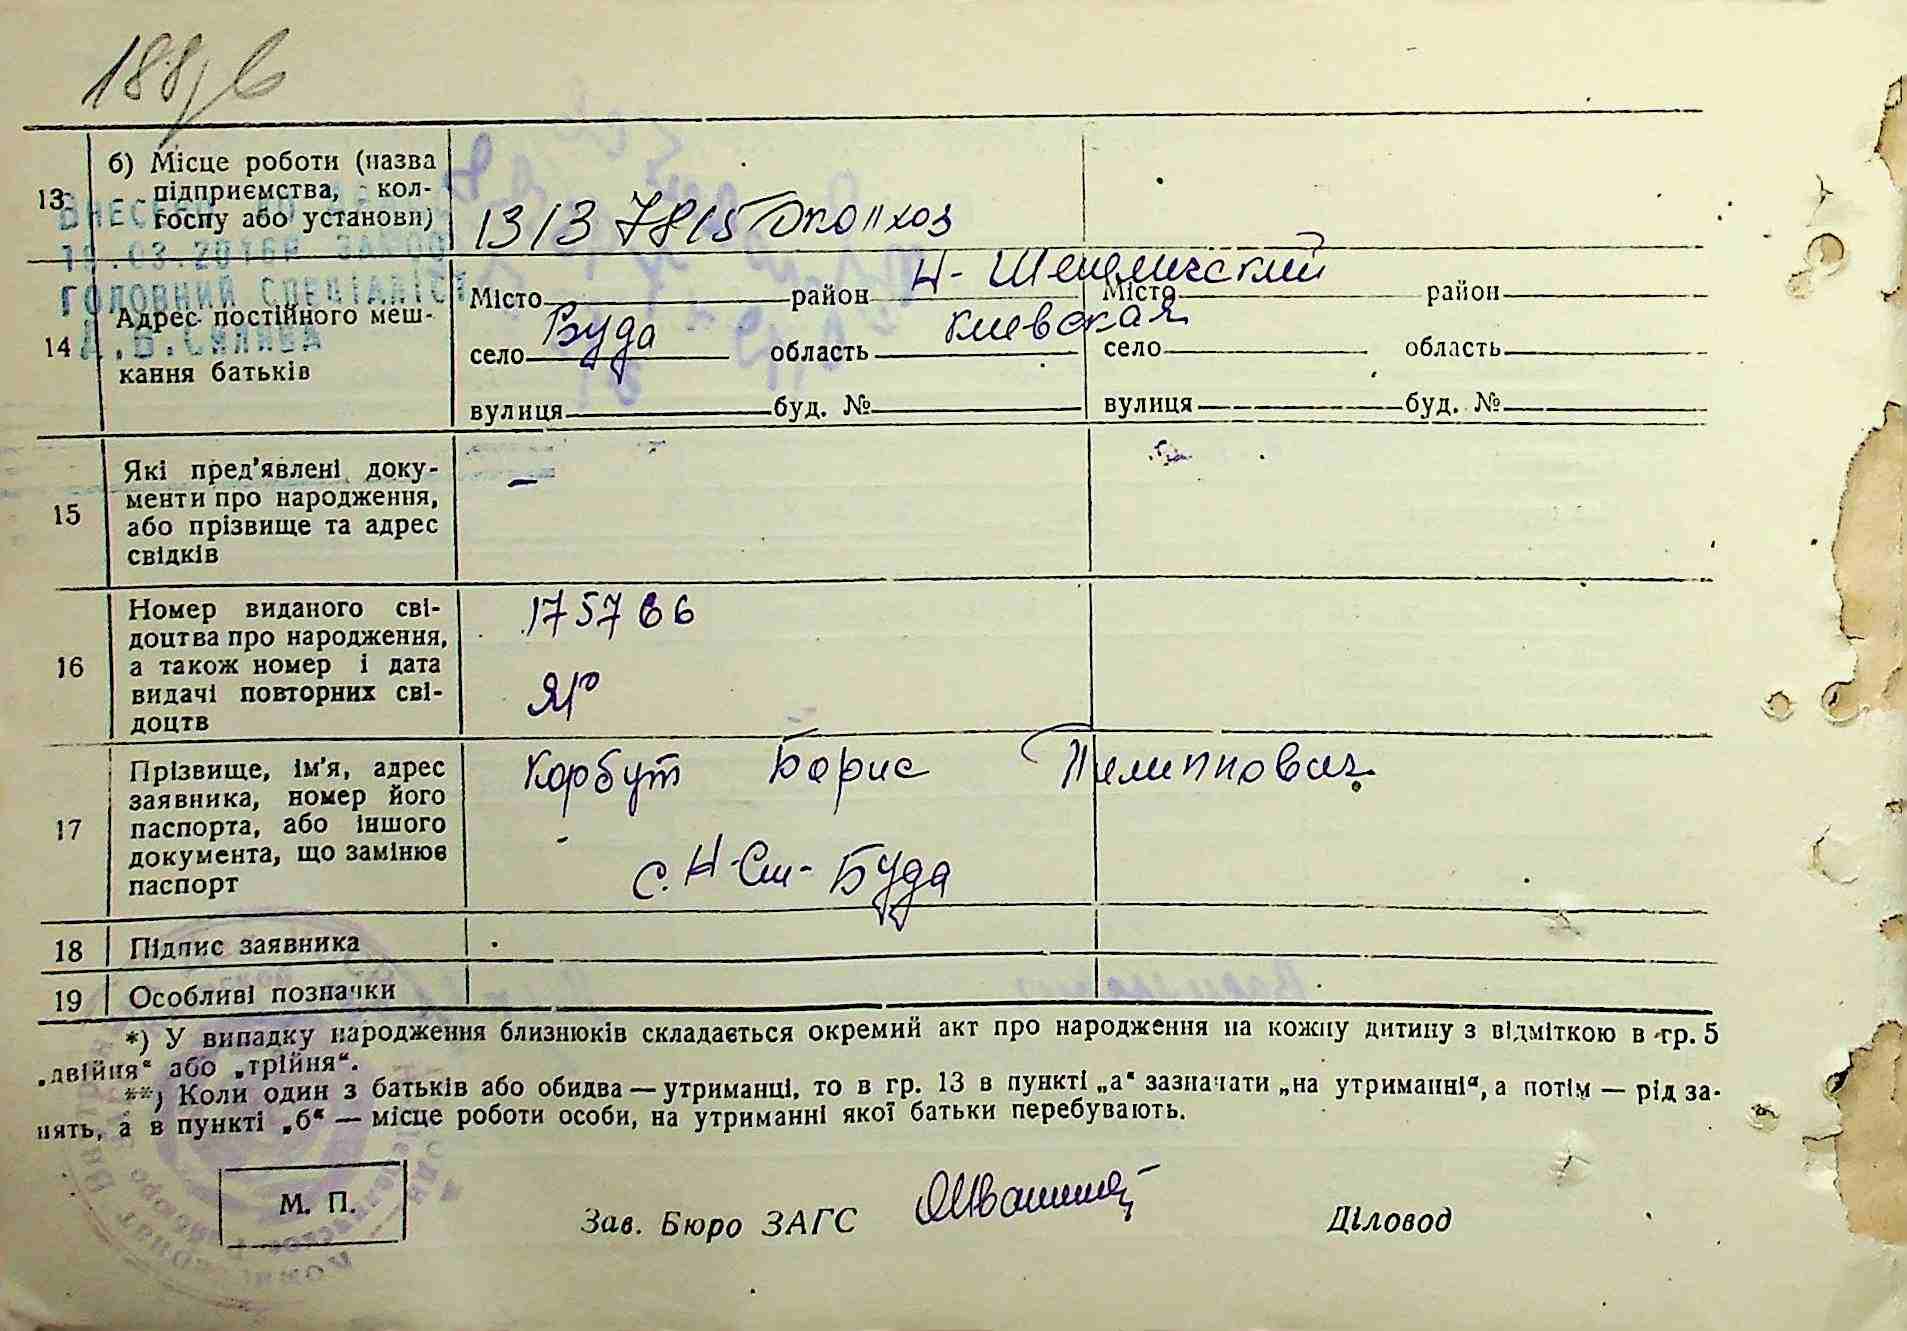 188/6
13
б) Місце роботи (назва
підприємства, кол-
госпу або установи)
колхоз
ВНЕСЕНО
ГОЛОВНИЙ СПЕЦІАЛІСТ
14
Адрес постійного меш-
кання батьків
Місто район Н-Шепеличский Місто район
село Буда область Киевская село область
вулиця буд. № вулиця буд. №
15
Які пред'явлені доку-
менти про народження,
або прізвище та адрес
свідків
–
16
Номер виданого сві-
доцтва про народження,
а також номер і дата
видачі повторних сві-
доцтв
175766
ЯР
17
Прізвище, ім'я, адрес
заявника, номер його
паспорта, або іншого
документа, що замінює
паспорт
Корбут Борис Пилиппович
с. Н-Ш-Буда
18 Підпис заявника
19 Особливі позначки
*) У випадку народження близнюків складається окремий акт про народження на кожну дитину з відміткою в гр. 5
„двійня“ або „трійня“.
**) Коли один з батьків або обидва — утриманці, то в гр. 13 в пункті „а“ зазначати „на утриманні“, а потім — рід за-
нять, а в пункті „б“ — місце роботи особи, на утриманні якої батьки перебувають.
М. П.
Зав. Бюро ЗАГС
Діловод